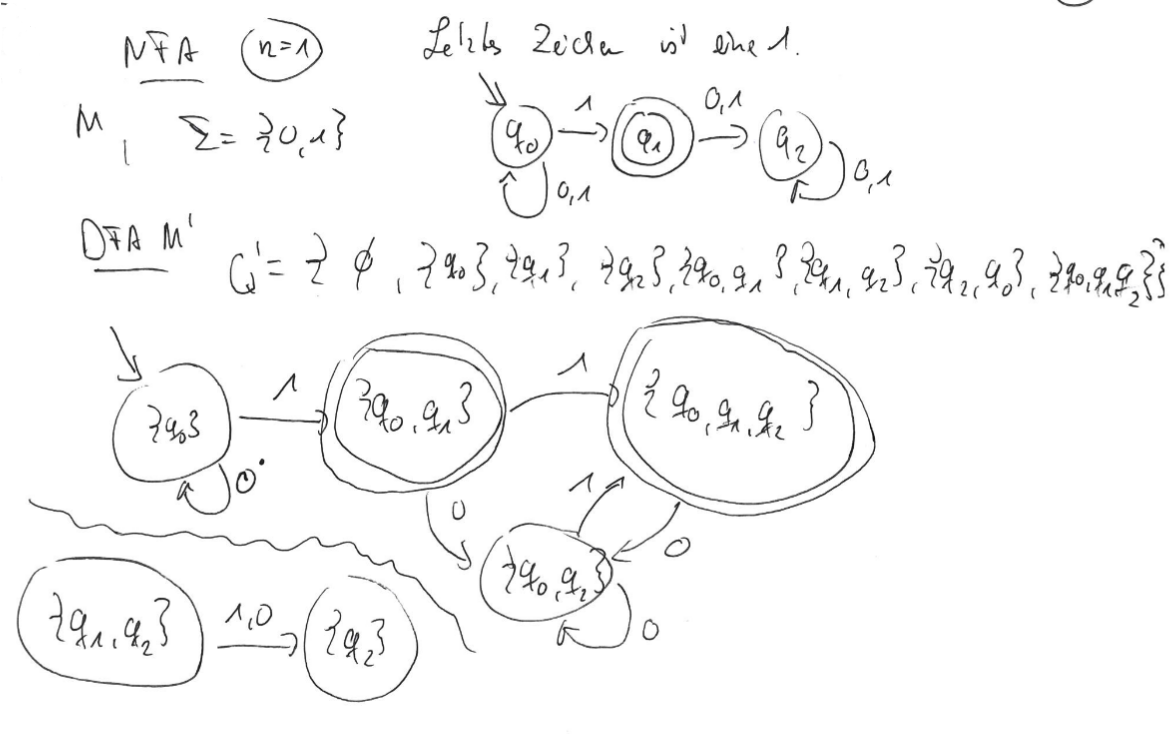 NFA n=1 Letztes Zeichen ist eine 1.
M, Σ = {0,1}
q₀ 1 q₁ 0,1 q₂
0,1 0,1
DFA M'
Q' = { ∅, {q₀}, {q₁}, {q₂}, {q₀,q₁}, {q₁,q₂}, {q₂,q₀}, {q₀,q₁,q₂}}
{q₀} 1 {q₀,q₁} 1 {q₀,q₁,q₂}
0 0 1 0
{q₀,q₂} 0
{q₁,q₂} 1,0 {q₂}